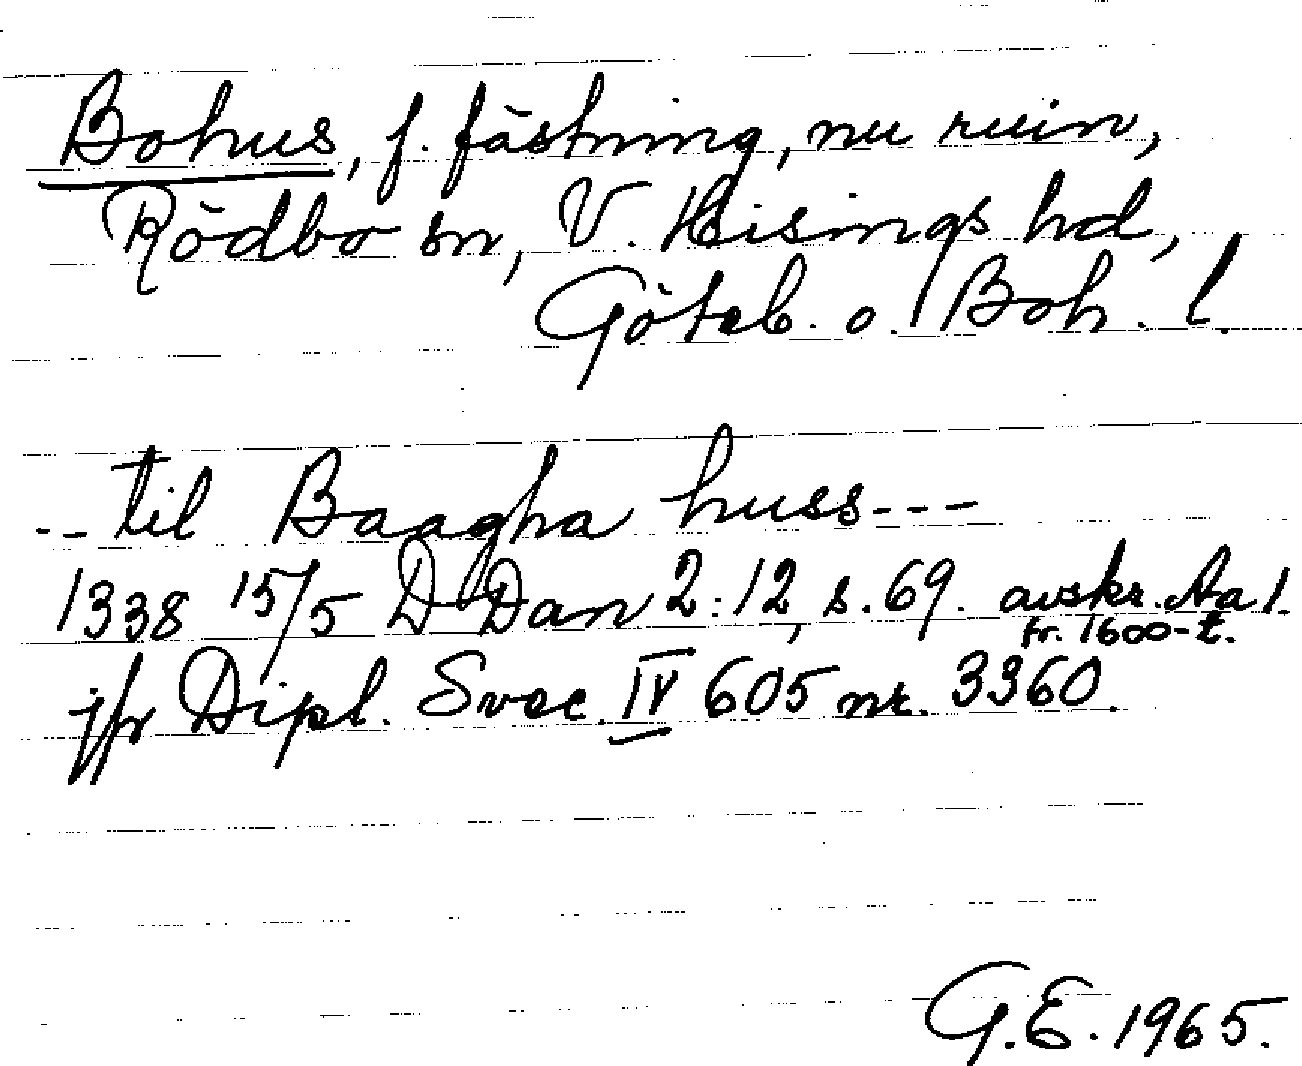 Bohus, f. fästning, nu ruin,
Rödbo sn, V. Hisings hd,
Göteb. o. Boh. l.
-- til Baagha huss ---
1338 15/5 D Dan 2:12, s. 69. avskr. Aa 1.
fr. 1600-t.
jfr Dipl. Svec. IV 605 nr. 3360.
G.E. 1965.